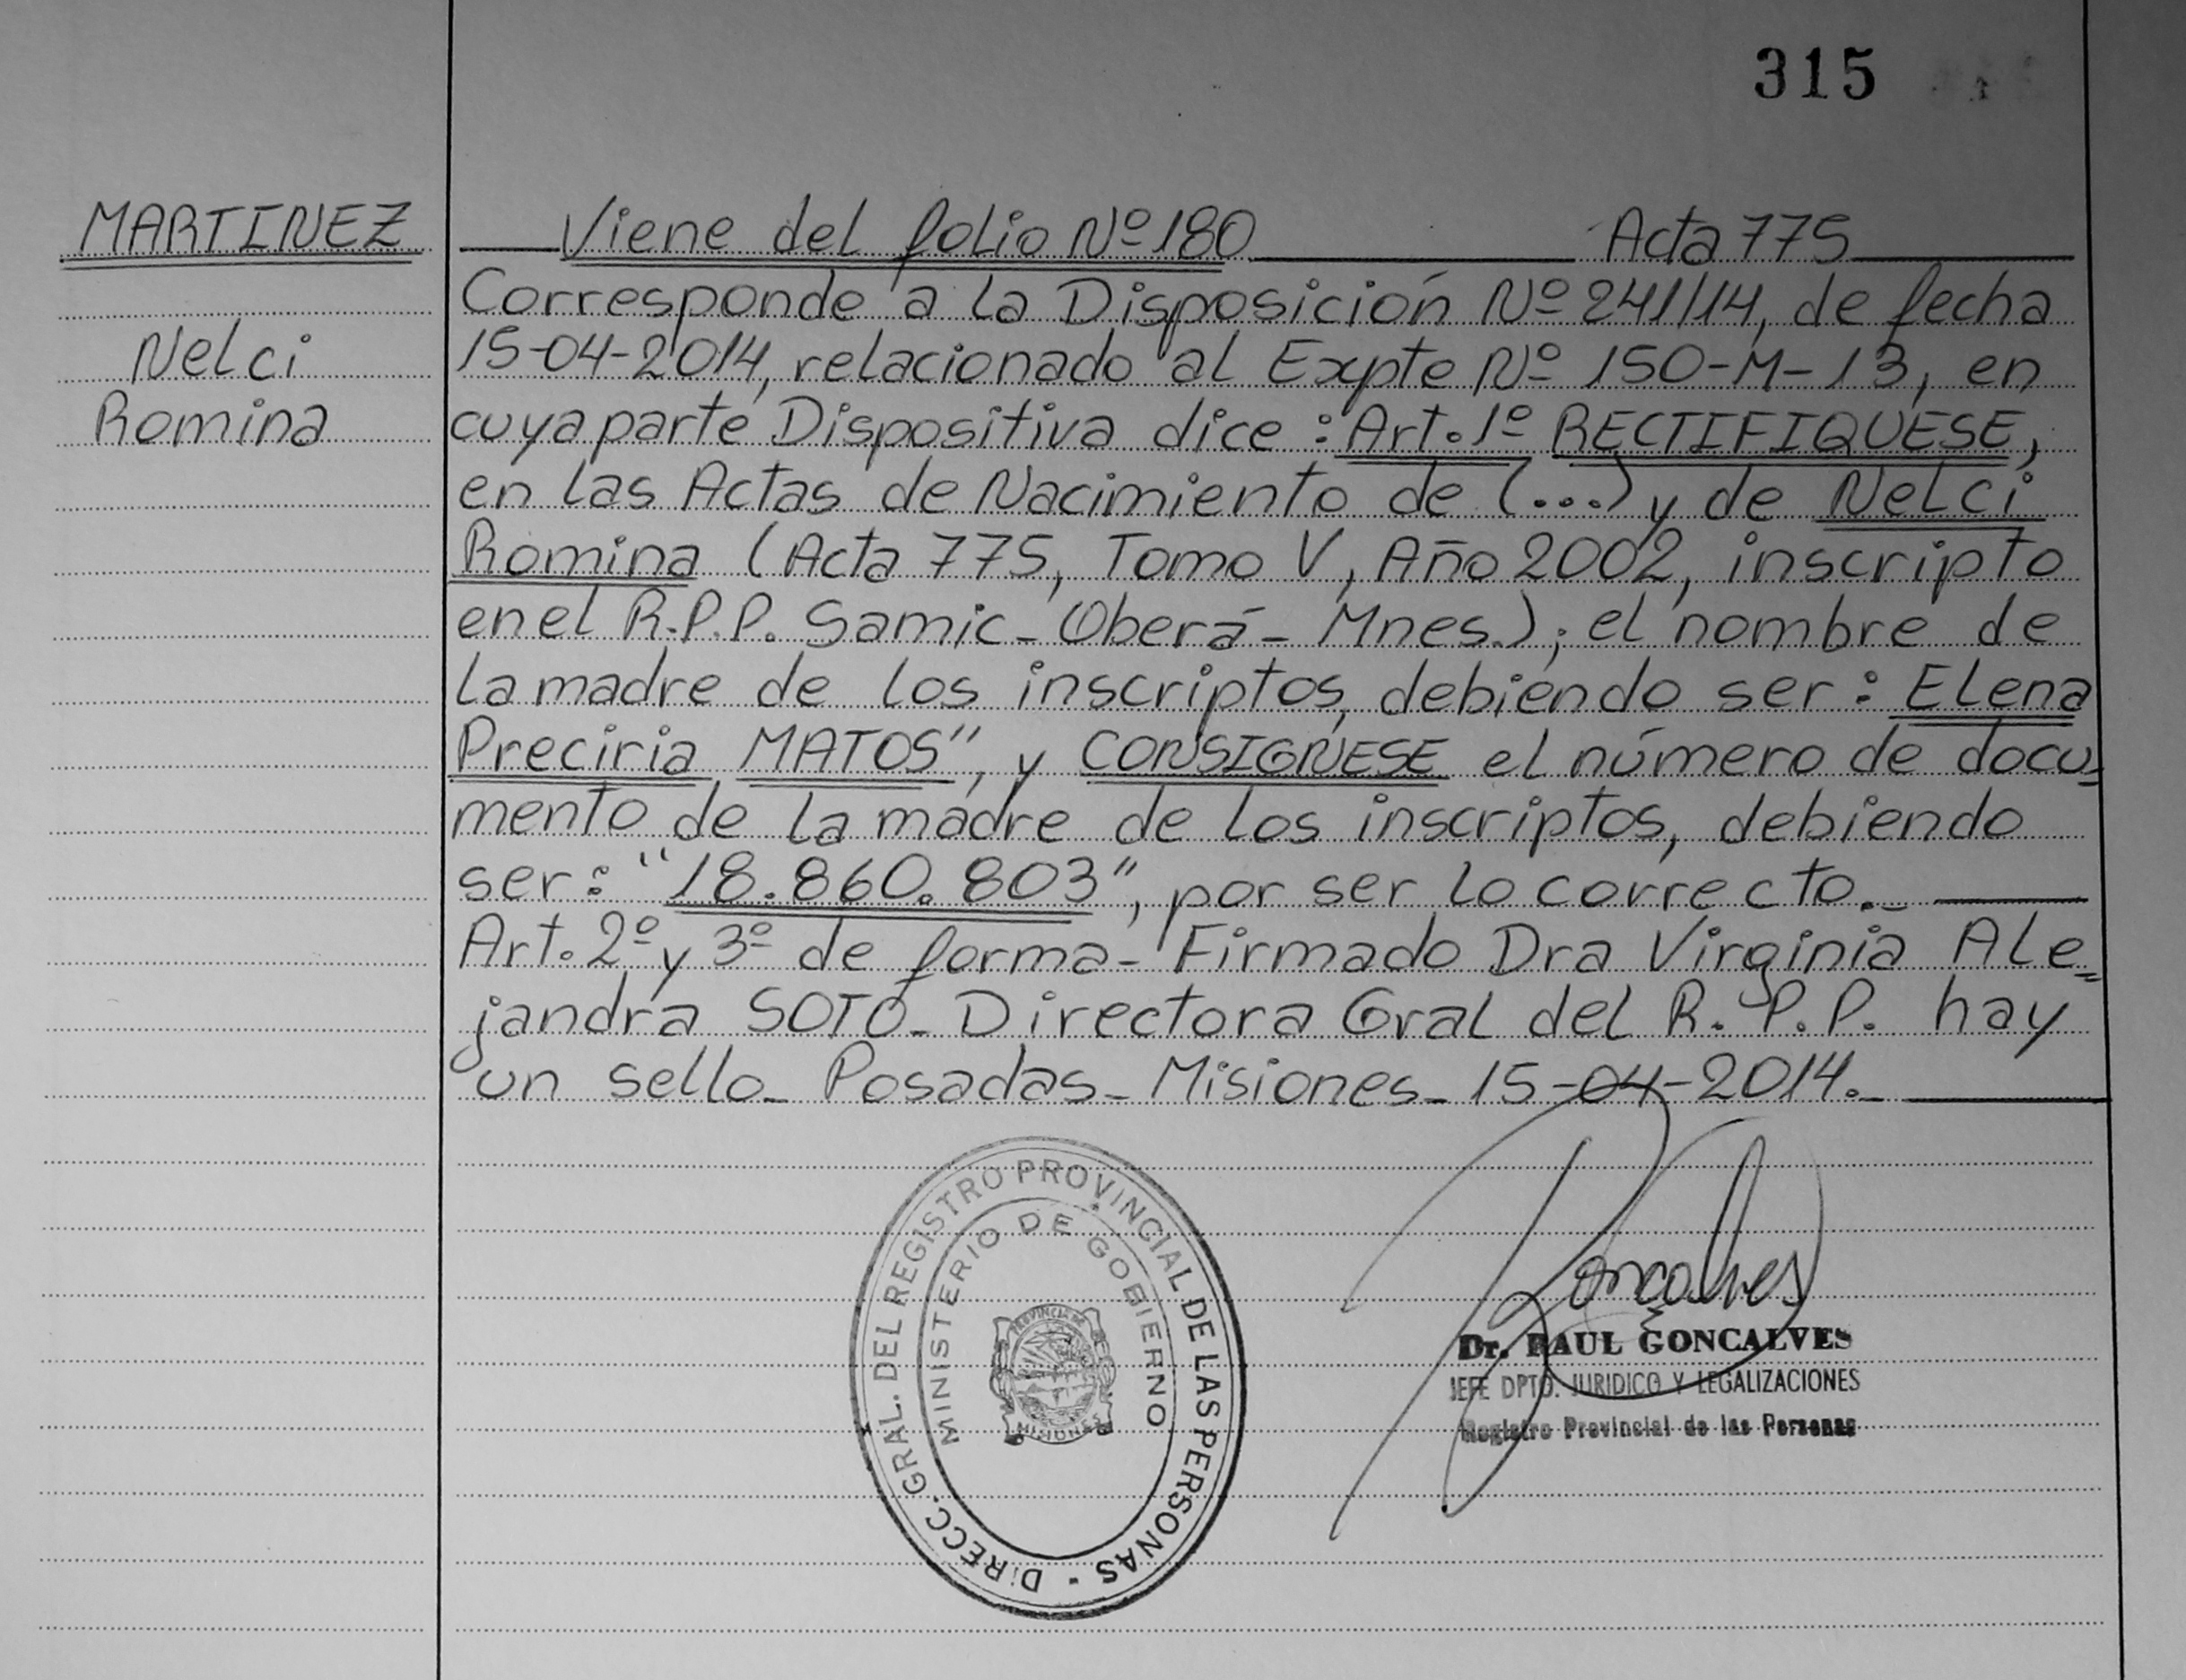 315
MARTINEZ
Nelci
Romina
Viene del folio Nº 180 Acta 775
Corresponde a la Disposición Nº 241/14, de fecha
15-04-2014, relacionado al Expte Nº 150-M-13, en
cuya parte Dispositiva dice : Art. 1º RECTIFIQUESE,
en las Actas de Nacimiento de (...) y de Nelci
Romina (Acta 775, Tomo V, Año 2002, inscripto
en el R.P.P. Samic - Oberá - Mnes.); el nombre de
la madre de los inscriptos, debiendo ser : Elena
Preciria MATOS", y CONSIGNESE el número de docu=
mento de la madre de los inscriptos, debiendo
ser : "18.860.803", por ser lo correcto.-
Art. 2º y 3º de forma - Firmado Dra Virginia Ale=
jandra SOTO - Directora Gral del R.P.P. hay
un sello - Posadas - Misiones - 15-04-2014.-
DIRECC. GRAL. DEL REGISTRO PROVINCIAL DE LAS PERSONAS -
MINISTERIO DE GOBIERNO
PROVINCIA DE
MISIONES
Gonçalves
Dr. RAUL GONCALVES
JEFE DPTO. JURIDICO Y LEGALIZACIONES
Registro Provincial de las Personas